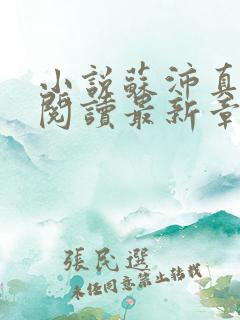 小說蘇沛真
閱讀最新章
張民選
未經同意禁止轉載